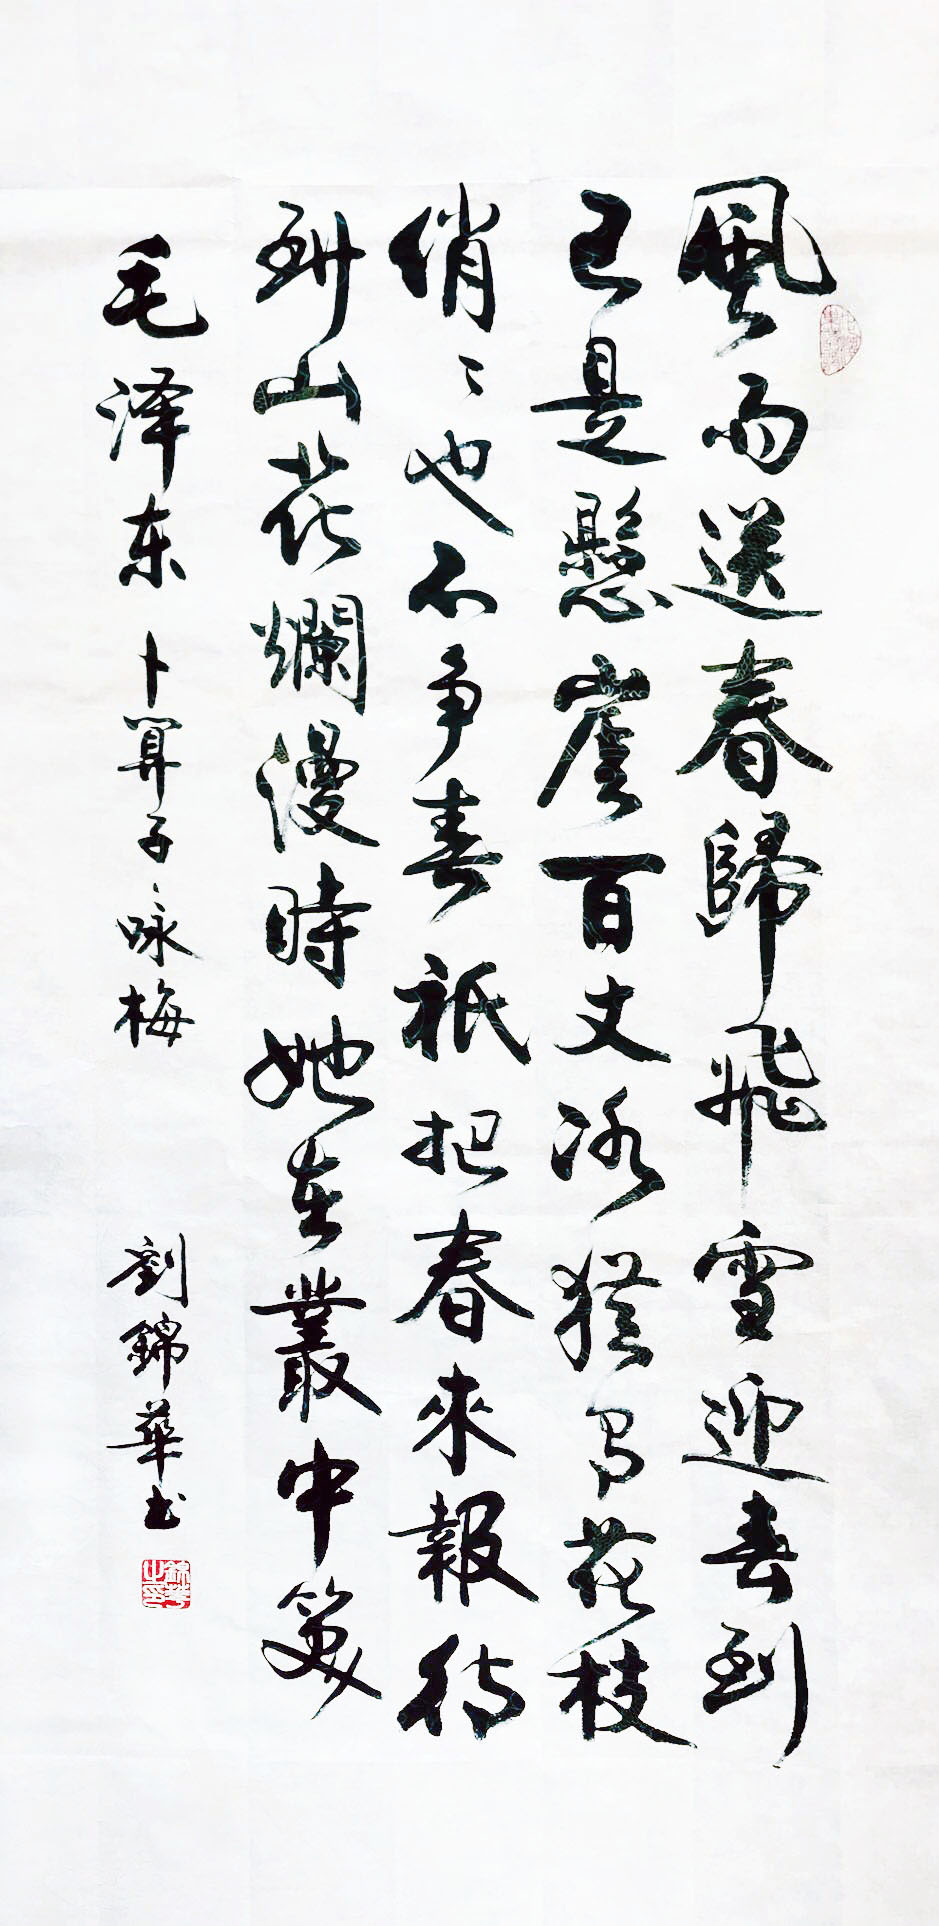 風雨送春歸飛雪迎春到
已是懸崖百丈冰猶有花枝
俏〻也不争春祇把春來報待
到山花爛漫時她在叢中笑
毛泽东 卜算子 咏梅 劉錦華书
錦華之印